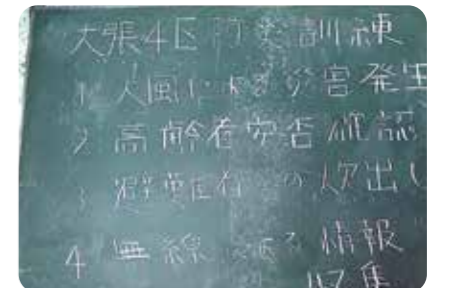 大張4区防災訓練
1 大風による災害発生
2 高齢者安否確認
3 避難 の炊出し
4 無線による情報
収集